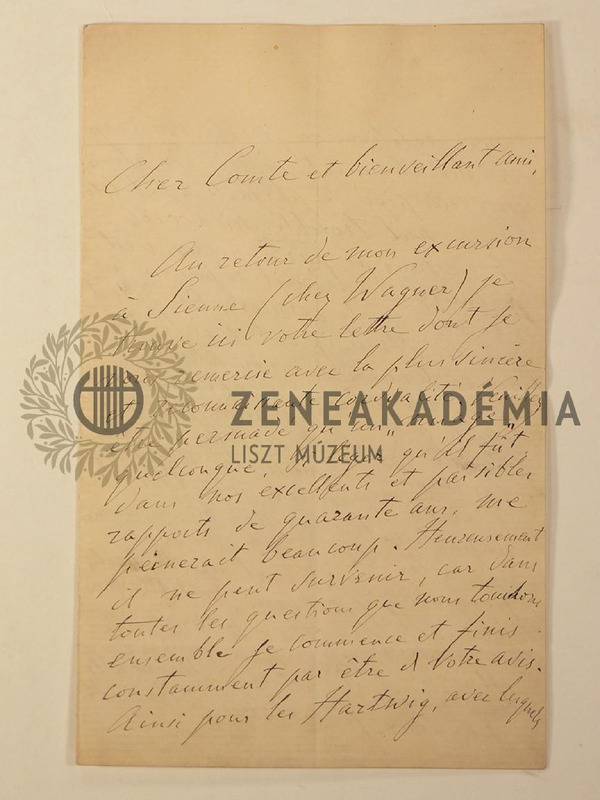 Cher Comte et bienveillant ami,
Au retour de mon excursion
à Sienne (chez Wagner) je
trouve ici votre lettre dont je
vous remercie avec la plus sincère
et reconnaissante cordialité. Veuillez
ZENEAKADÉMIA
être persuadé qu'un „nuage"
LISZT MÚZEUM
quelconque, si léger qu'il fût,
dans nos excellents et paisibles
rapports de quarante ans, me
peinerait beaucoup. Heureusement
il ne peut survenir, car dans
toutes les questions que nous touchons
ensemble je commence et finis
constamment par être de votre avis.
Ainsi pour les Hartwig, avec lesquels